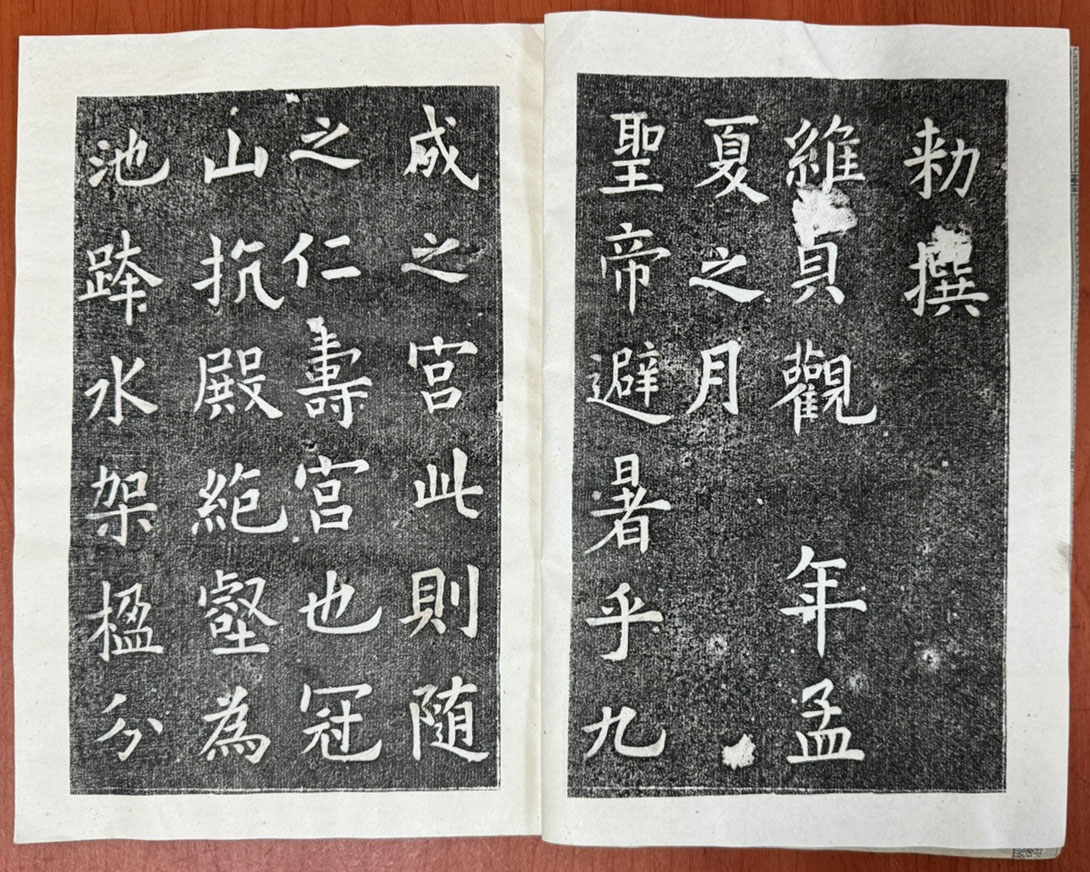 勑撰
維貞觀年孟
夏之月
聖帝避暑乎九
成之宮此則隨
之仁壽宮也冠
山抗殿絶壑為
池跨水架楹分